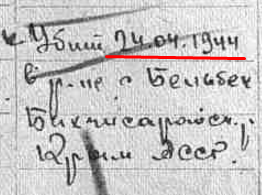 Убит 24.04.1944
в р-не с Бельбек
Бахчисарайск. р.
Крым АССР.